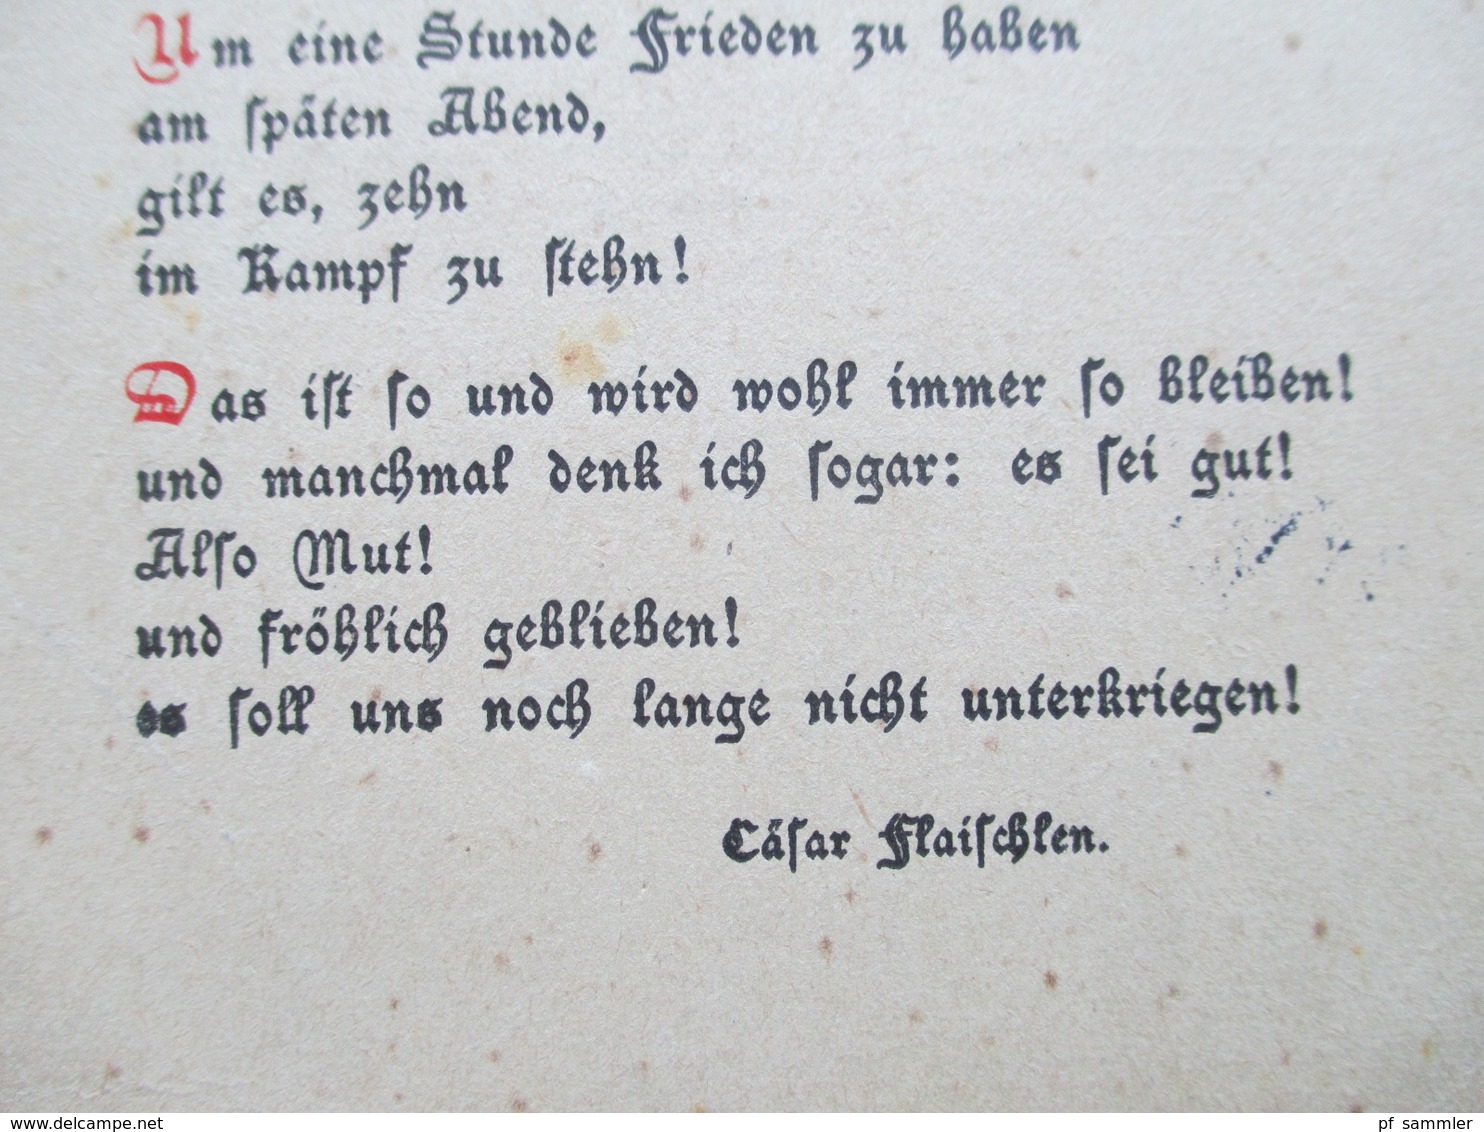 Um eine Stunde Frieden zu haben
am ſpäten Abend,
gilt es, zehn
im Kampf zu ſtehn!
Das iſt ſo und wird wohl immer ſo bleiben!
und manchmal denk ich ſogar: es ſei gut!
Alſo Mut!
und fröhlich geblieben!
es ſoll uns noch lange nicht unterkriegen!
Cäſar Flaiſchlen.
www.delcampe.net
pf_sammler